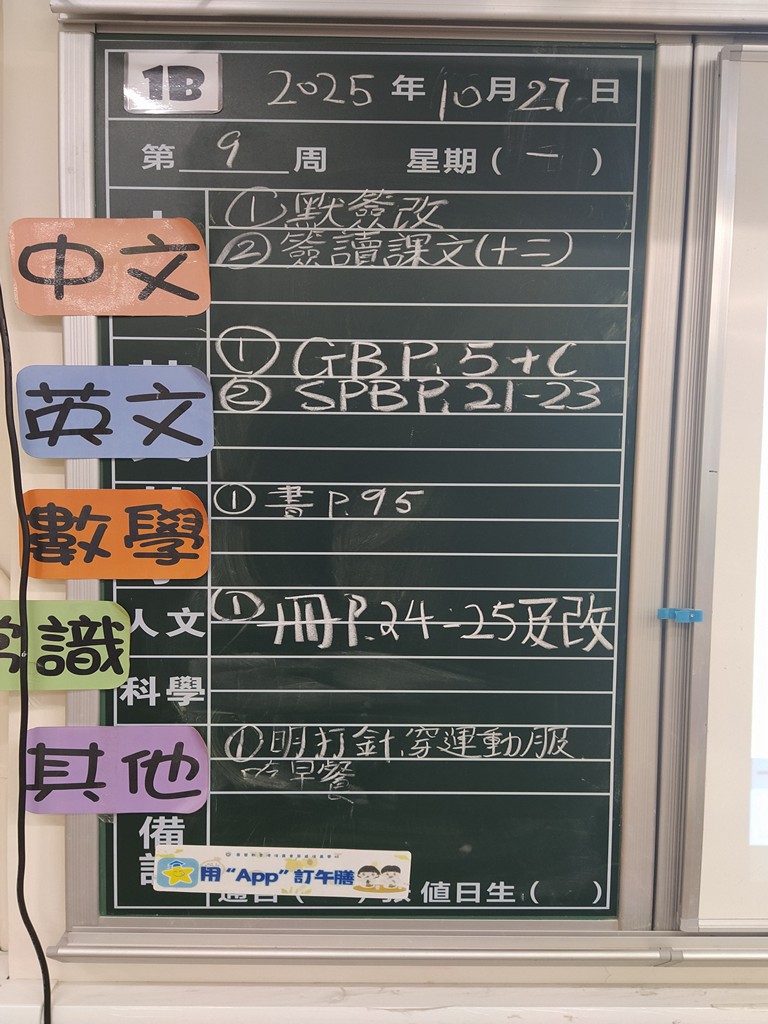 1B 2025年10月27日
第 9 周 星期(一)
中文
① 默簽改
② 簽讀課文(十二)
英文
① GB P.5+C
② SPB P.21-23
數學
① 書 P.95
常識
人文
① 冊 P.24-25及改
科學
其他
① 明打針,穿運動服
吃早餐
備
用“App”訂午膳
值日生( )